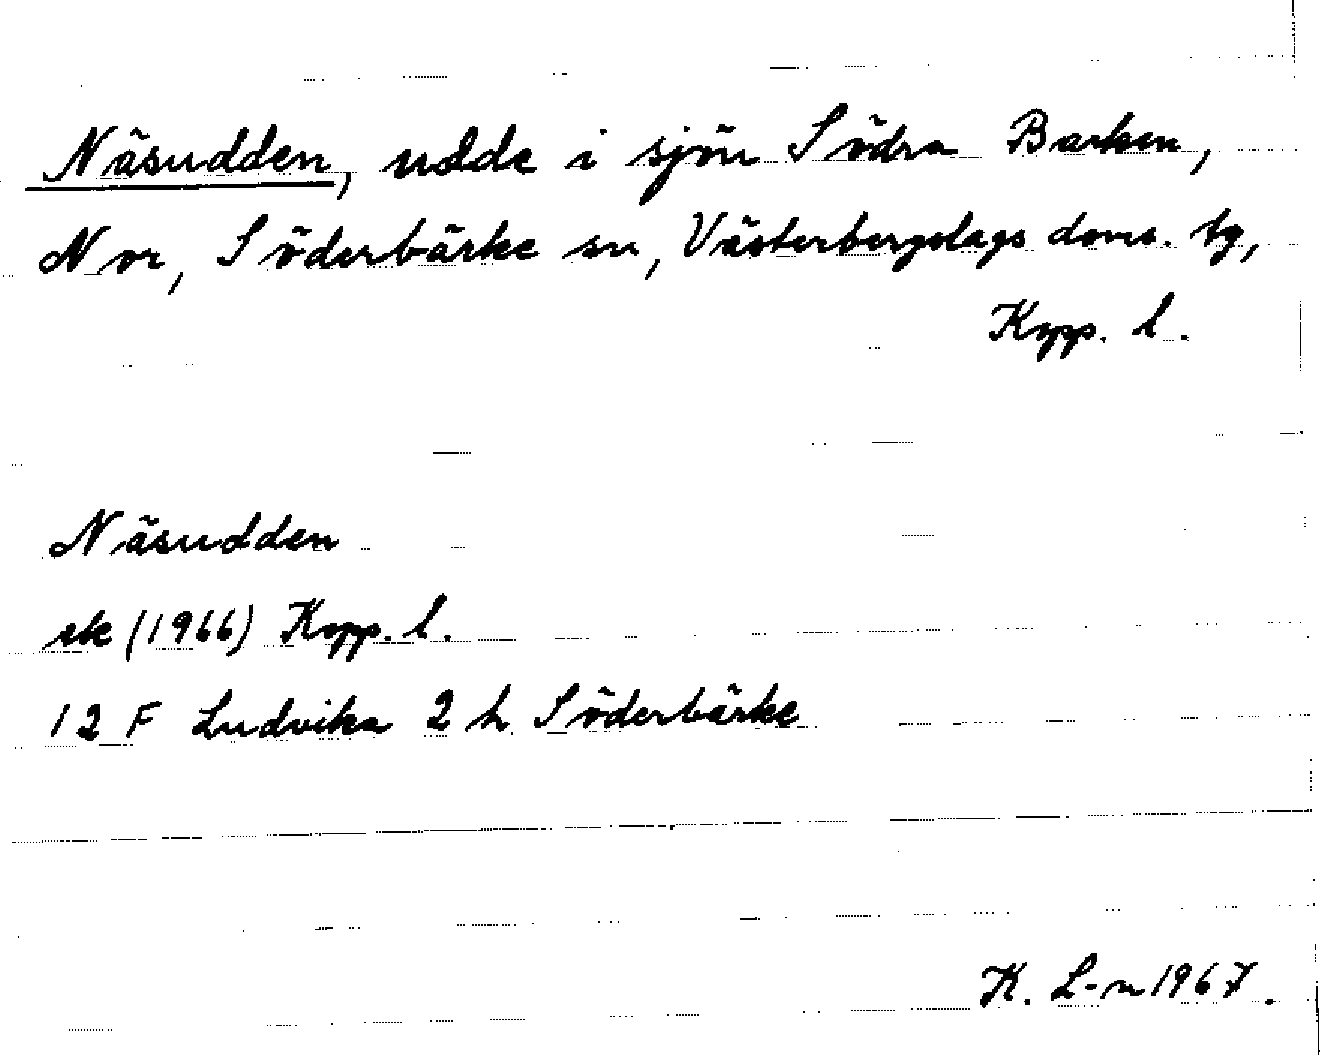 Näsudden, udde i sjön Södra Barken,
Nor, Söderbärke sn, Västerbergslags doms. tg,
Kopp. l.
Näsudden
ek (1966) Kopp. l.
12 F Ludvika 2 h Söderbärke
K. L-n 1967.